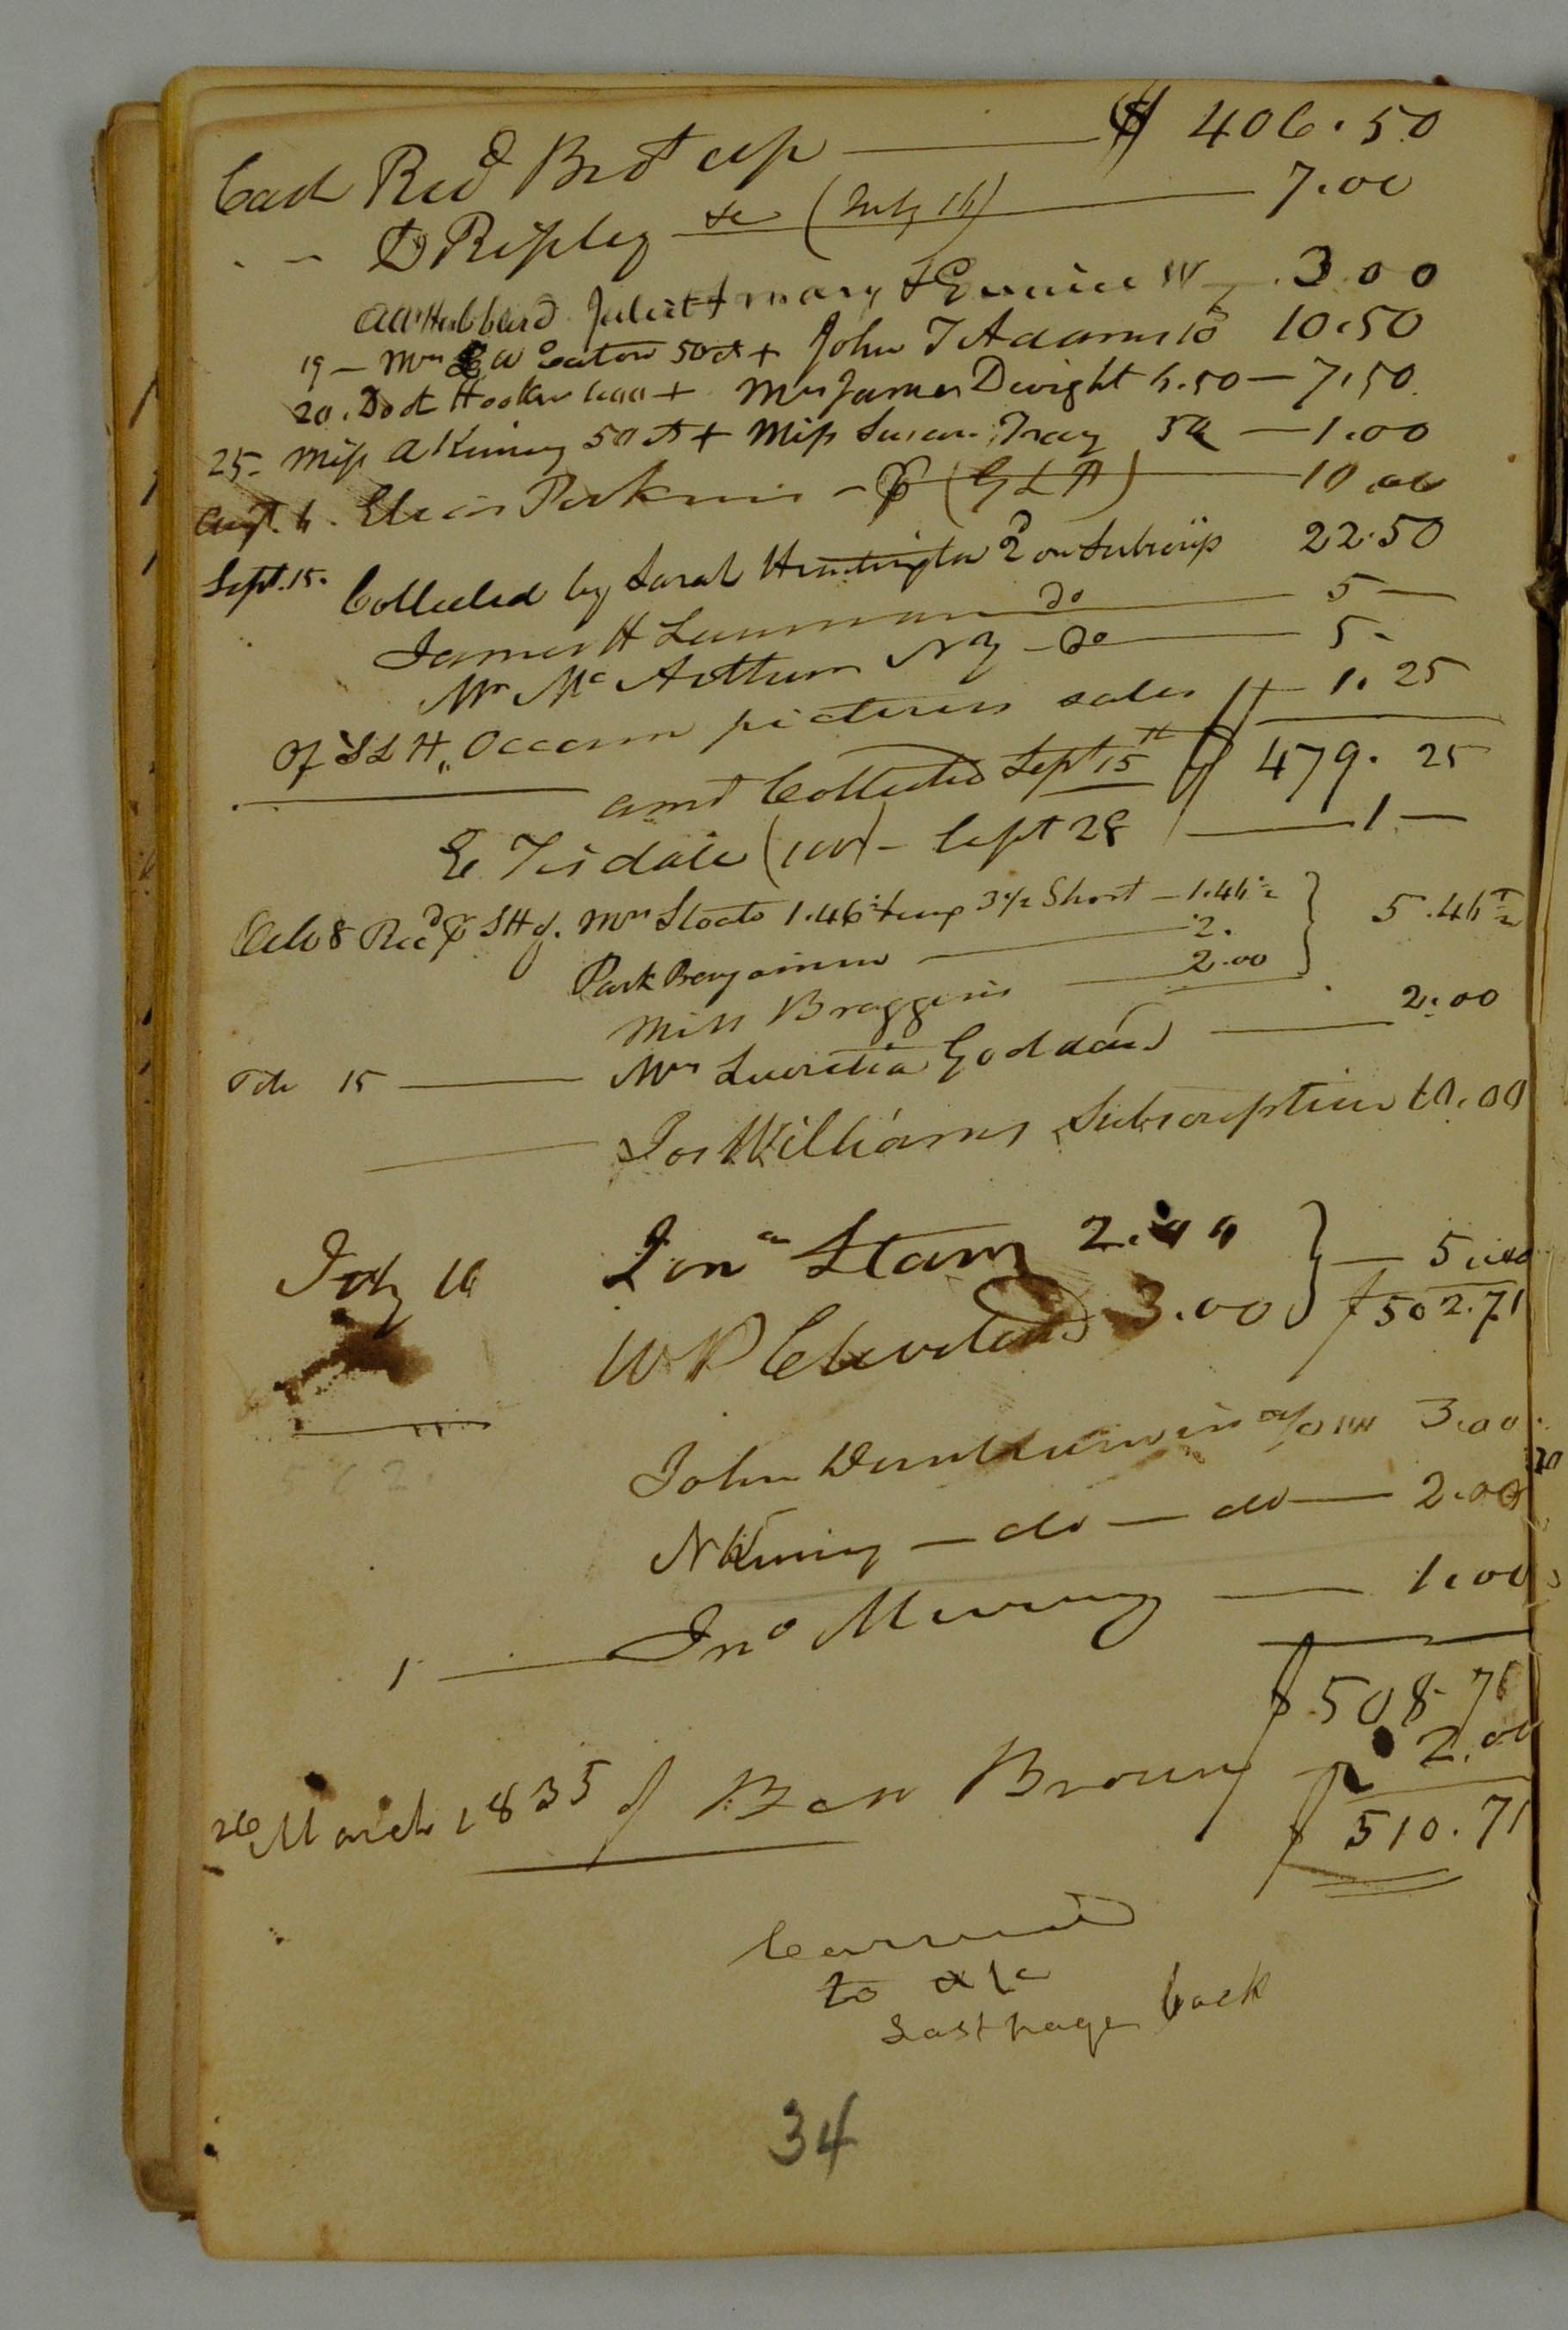 Cash Recd Brot up — $ 406.50
" " D Ripley &c (July 16) — 7.00
Hubbard Juliet + Mary & Eunice W — 3.00
19 — Mrs E W Eaton 50 ct + John T Adams 10 10.50
20. Doct Hooker 1.00 + Mrs James Dwight 6.50 — 7.50
25 — Miss A Kinney 50 ct + Miss Susan Tracy 50 — 1.00
Augt. 6. Elias Perkins — (G L P) — 10.00
Sept. 15. Collected by Sarah Huntington on Subscrip 22.50
James H Lanman do — 5 —
Mr McArthur NY — do — 5 —
Of S L H " Occom pictures sales 1.25
amt Collected Sept 15th $ 479.25
E Tisdale (100) — Sept 28 — 1 —
Octo 8 Recd pr S H of Mrs 1.46½ 3½ Short — 1.46½ } 5.46½
Park Benjamin — 2.
Miss Braggins — 2.00
Octo 15 — Mrs Lucretia Goddard — 2.00
— Jos Williams Subscription 10.00
July 16 Jona Starr 2.00 } — 5.00
W P Cleveland 3.00 $ 502.71
John Dunham in 3.00
N Kinney — do — do — 2.00
1 — Jno Murray — 1.00
$ 508.71
26 March 1835 of Ben Brown 2.00
$ 510.71
Carried
to a/c
last page back
34